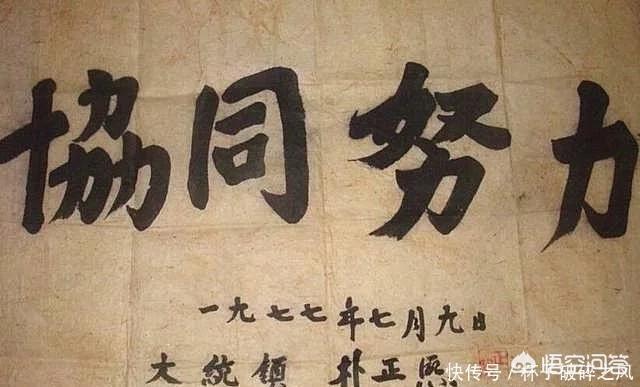 協同努力
一九七七年七月九日
大統領 朴正
悟空问答
快传号/林子破碎之风